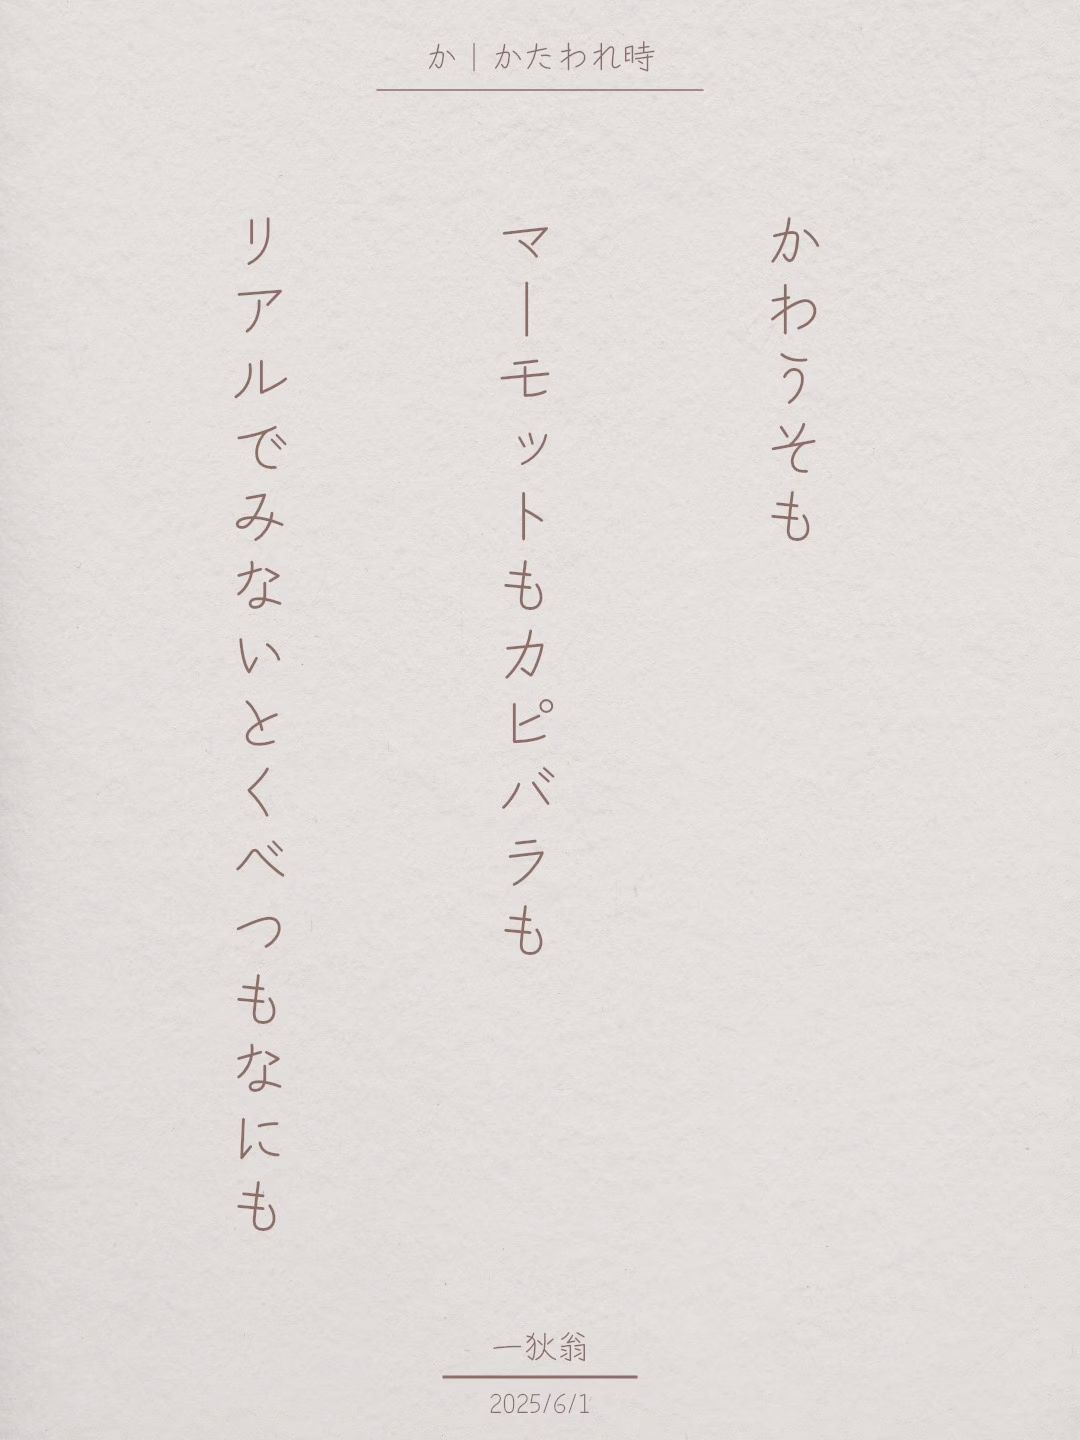 か｜かたわれ時
かわうそも
マーモットもカピバラも
リアルでみないとくべつもなにも
一狄翁
2025/6/1